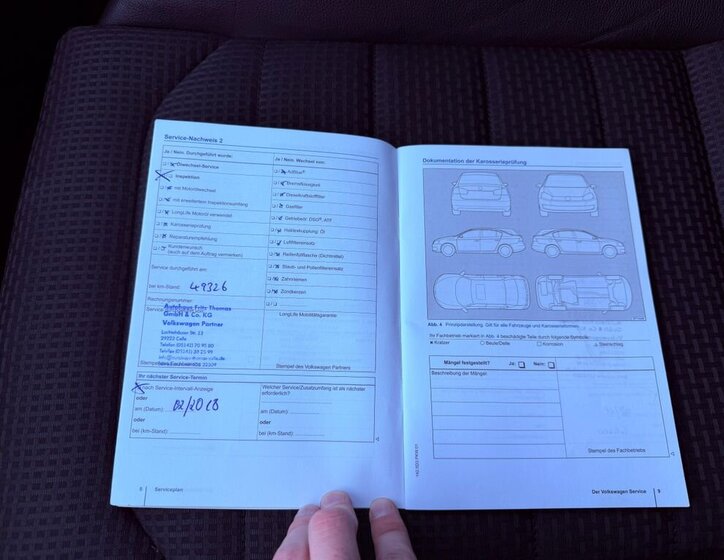 Service-Nachweis 2
Ja / Nein. Durchgeführt wurde:
Ölwechsel-Service
Inspektion
mit Motorölwechsel
mit erweitertem Inspektionsumfang
LongLife Motoröl verwendet
Karosserieprüfung
Reparaturempfehlung
Kundenwunsch
(auch auf dem Auftrag vermerken)
Service durchgeführt am:
bei km-Stand: 49326
Rechnungsnummer:
Autohaus Fritz Thomas
GmbH & Co. KG
Volkswagen Partner
29223 Celle
Ihr nächster Service-Termin
nach Service-Intervall-Anzeige
oder
am (Datum): 02/2018
oder
bei (km-Stand):
Ja / Nein. Wechsel von:
AdBlue®
Bremsflüssigkeit
Dieselkraftstofffilter
Gasfilter
Getriebeöl: DSG®, ATF
Haldexkupplung: Öl
Luftfiltereinsatz
Reifenfüllflasche (Dichtmittel)
Staub- und Pollenfiltereinsatz
Zahnriemen
Zündkerzen
LongLife Mobilitätsgarantie
Stempel des Volkswagen Partners
Welcher Service/Zusatzumfang ist als nächster
erforderlich?
am (Datum):
oder
bei (km-Stand):
8 Serviceplan
Dokumentation der Karosserieprüfung
Abb. 4 Prinzipdarstellung. Gilt für alle Fahrzeuge und Karosserieformen.
Ihr Fachbetrieb markiert in Abb. 4 beschädigte Teile durch folgende Symbole:
Kratzer Beule/Delle Korrosion Steinschlag
Mängel festgestellt? Ja: Nein:
Beschreibung der Mängel:
Stempel des Fachbetriebs
Der Volkswagen Service 9